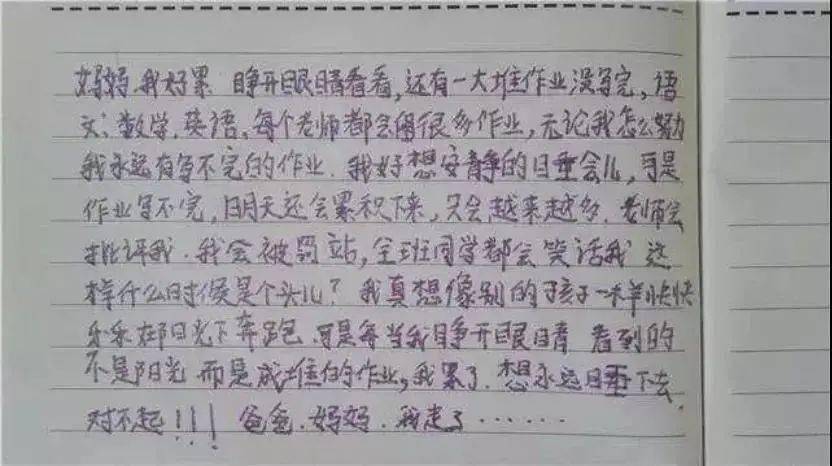 妈妈,我好累 睁开眼睛看看,还有一大堆作业没写完,语
文、数学、英语、每个老师都会留很多作业,无论我怎么努力
我永远有写不完的作业.我好想安静的睡会儿,可是
作业写不完,明天还会累积下来,只会越来越多.老师会
批评我.我会被罚站,全班同学都会笑话我 这
样什么时候是个头儿?我真想像别的孩子一样快快
乐乐在阳光下奔跑.可是每当我睁开眼睛 看到的
不是阳光 而是成堆的作业,我累了.想永远睡下去,
对不起!!! 爸爸.妈妈.我走了……